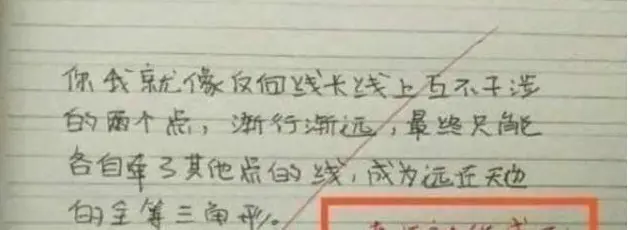 你我就像反向延长线上互不干涉
的两个点，渐行渐远，最终只能
各自牵了其他点的线，成为远在天边
的全等三角形。